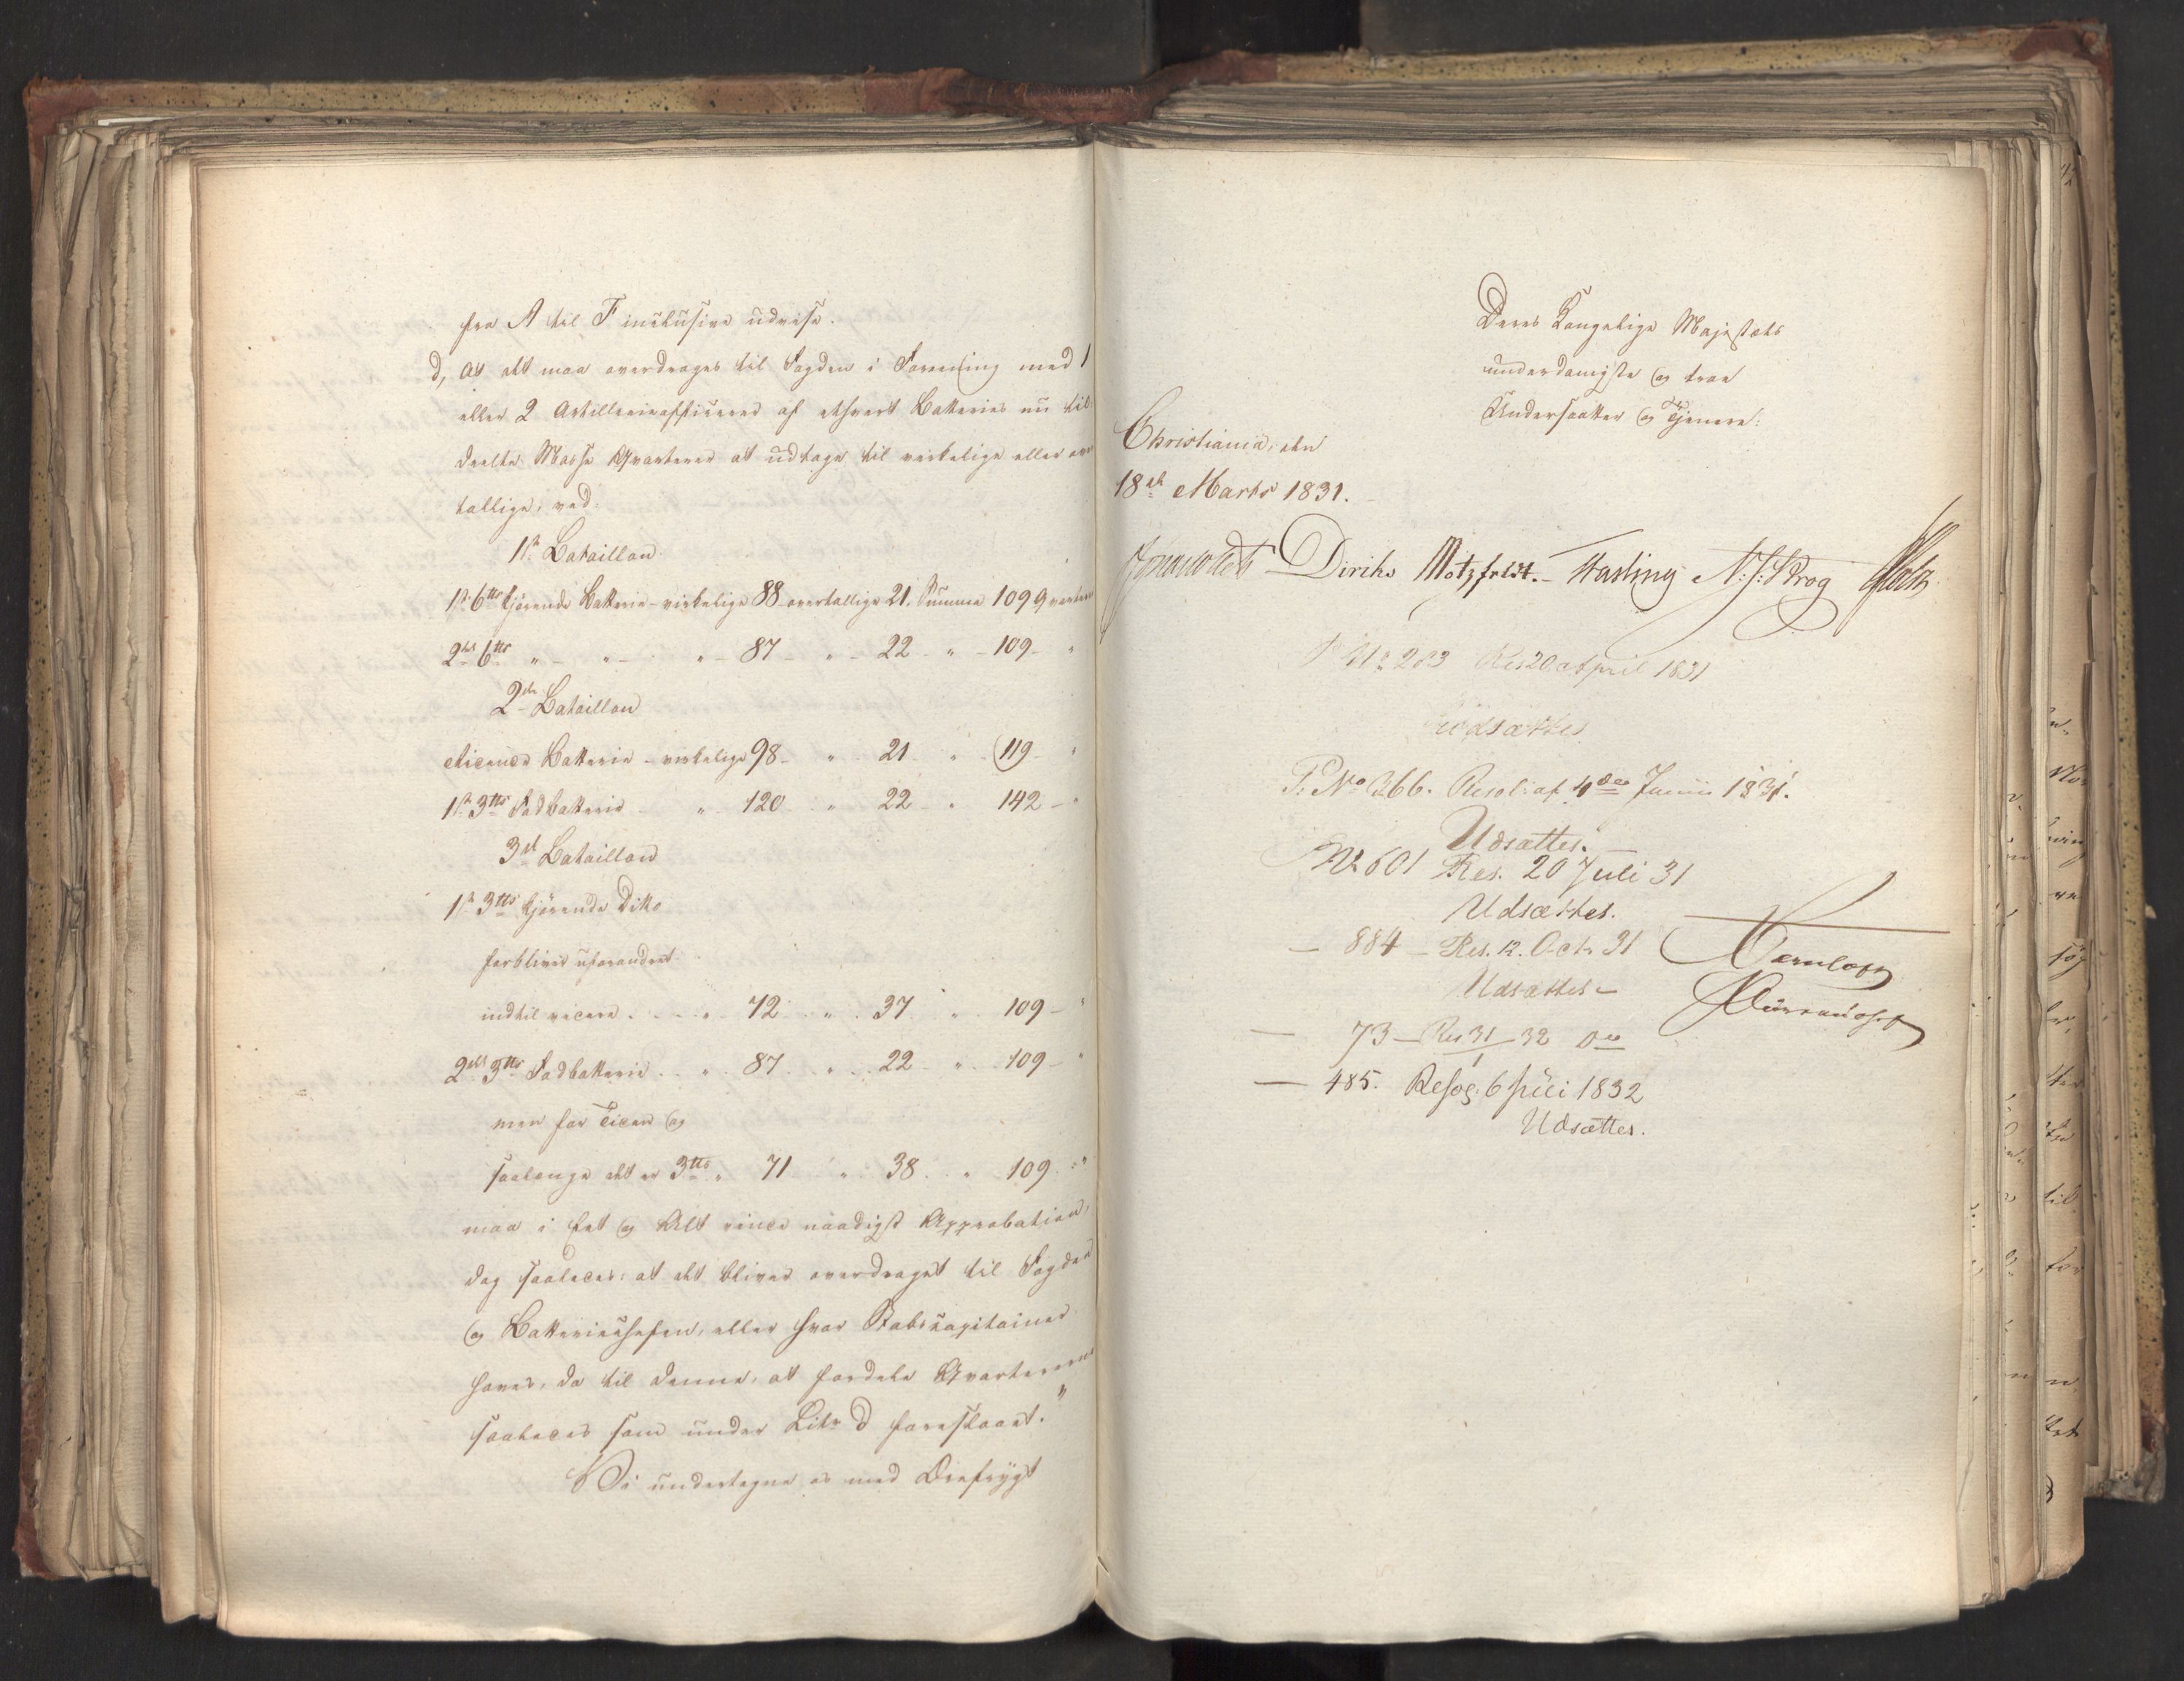 fra A til F inclusive udvise.
d, at det maa overdrages til Fogden i Forening med 1
eller 2 Artilleriofficerer af ethvert Batteries nu til-
deelte Masse Qvarterer at udtage til virkelige eller over
tallige, ved:
1ste Bataillon
1ste 6tts kjørende Batterie - virkelige 88 - overtallige 21. Summa 109 Qvarterer
2det 6tts " - " - " - 87 - " - 22 - " - 109 - "
2den Bataillon
Batterie - virkelige 98 - " - 21 - " - 119 - "
1ste 3tts Fodbatterie - " - 120 - " - 22 - " - 142 - "
3die Bataillon
1ste 3tts kjørende Ditto
forbliver uforandret
indtil videre - - - " - 72 - " - 37 - " - 109 - "
2det 3tts Fodbatterie - - " - 87 - " - 22 - " - 109 - "
men for Tiden og
saalænge det er 3tts " 71 " 38 - " 109 - "
maa i Eet og Alt vinde naadigst Approbation,
dog saaledes: at det bliver overdraget til Fogden
og Batteriechefen, eller hvor Stabscapitainer
haves, da til denne, at fordele Qvartererne
saaledes som under Litr d foreslaaet."
Vi undertegne os med Ærefrygt
Deres Kongelige Majestæts
underdanigste og troe
Undersaatter og Tjenere:
Christiania, den
18de Marts 1831.
Diriks Motzfeldt. Fasting N: J: Krog Holst
P No 283 Res 20 April 1831
Udsættes
P. No 366. Resol: af 4de Junii 1831.
Udsættes.
No 601 Res. 20 Juli 31
Udsættes.
— 884 — Res. 12. Octr 31
Udsættes —
— 73 — Res 31/1 32 do
— 485. Resol: 6 Juli 1832
Udsættes.